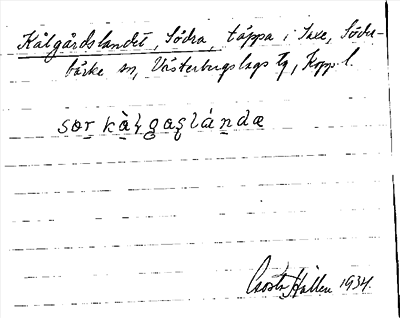 Kålgårdslandet, Södra, täppa i Saxe, Söder-
bärke sn, Västerbergslags tg, Kopp. l.
sør kàlgaslánda
Gösta Hallén 1934.